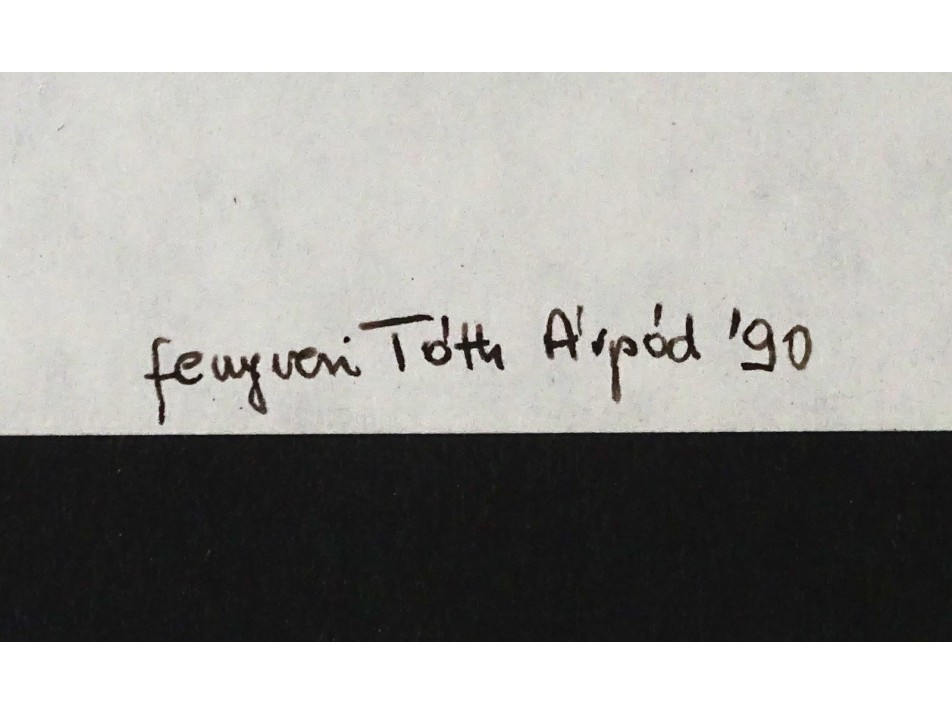 fenyvesi Tóth Árpád '90